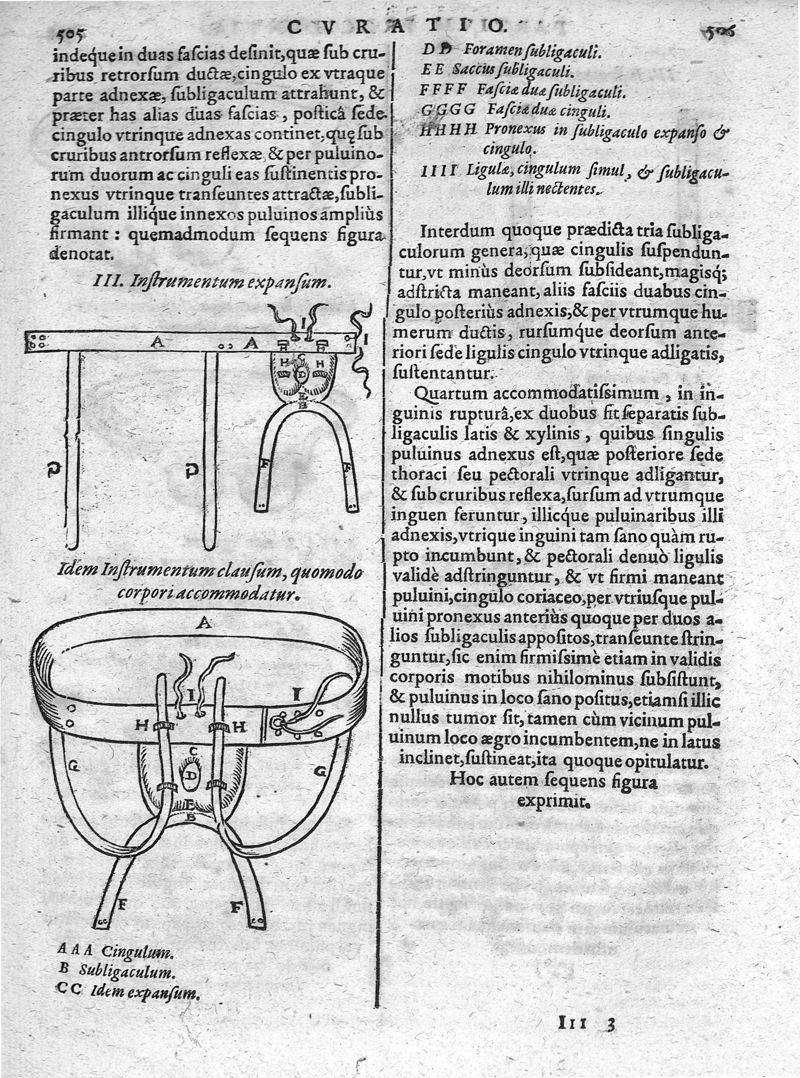 505
CVRATIO.
506
indeque in duas fascias desinit, quæ sub cru-
ribus retrorsum ductæ, cingulo ex vtraque
parte adnexæ, subligaculum attrahunt, &
præter has alias duas fascias, posticâ sede
cingulo vtrinque adnexas continet, quę sub
cruribus antrorsum reflexæ & per puluino-
rum duorum ac cinguli eas sustinentis pro-
nexus vtrinque transeuntes attractæ, subli-
gaculum illique innexos puluinos ampliùs
firmant: quemadmodum sequens figura
denotat.
III. Instrumentum expansum.
A
A
I
I
H
C
H
D
E
B
P
P
F
F
Idem Instrumentum clausum, quomodo
corpori accommodatur.
A
I
I
H
H
G
C
G
D
E
B
F
F
A A A Cingulum.
B Subligaculum.
C C Idem expansum.
D D Foramen subligaculi.
E E Saccus subligaculi.
F F F F Fasciæ duæ subligaculi.
G G G G Fasciæ duæ cinguli.
H H H H Pronexus in subligaculo expanso &
cingulo.
I I I I Ligulæ, cingulum simul, & subligacu-
lum illi nectentes.
Interdum quoque prædicta tria subliga-
culorum genera, quæ cingulis suspendun-
tur, vt minùs deorsum subsideant, magisq;
adstricta maneant, aliis fasciis duabus cin-
gulo posterius adnexis, & per vtrumque hu-
merum ductis, rursumque deorsum ante-
riori sede ligulis cingulo vtrinque adligatis,
sustentantur.
Quartum accommodatissimum, in in-
guinis rupturâ, ex duobus fit separatis sub-
ligaculis latis & xylinis, quibus singulis
puluinus adnexus est, quæ posteriore sede
thoraci seu pectorali vtrinque adligantur,
& sub cruribus reflexa, sursum ad vtrumque
inguen feruntur, illicque puluinaribus illi
adnexis, vtrique inguini tam sano quàm ru-
pto incumbunt, & pectorali denuò ligulis
validè adstringuntur, & vt firmi maneant
puluini, cingulo coriaceo, per vtriusque pul-
uini pronexus anteriùs quoque per duos a-
lios subligaculis appositos, transeunte strin-
guntur, sic enim firmissimè etiam in validis
corporis motibus nihilominus subsistunt,
& puluinus in loco sano positus, etiamsi illic
nullus tumor sit, tamen cùm vicinum pul-
uinum loco ægro incumbentem, ne in latus
inclinet, sustineat, ita quoque opitulatur.
Hoc autem sequens figura
exprimit.
Iii 3